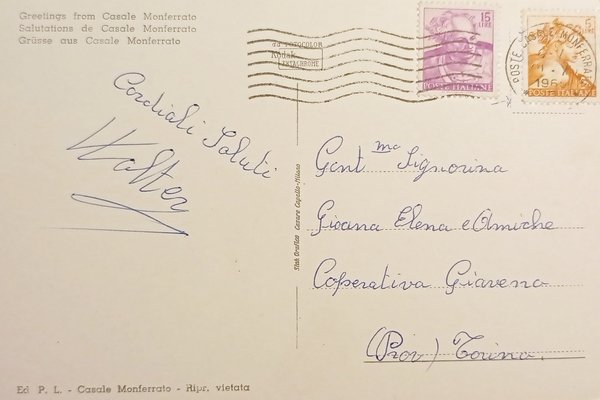 Greetings from Casale Monferrato
Salutations de Casale Monferrato
Grüsse aus Casale Monferrato
Kodak
EKTACHROME
15
LIRE
POSTE ITALIANE
5
LIRE
POSTE ITALIANE
POSTE CASALE MONFERRATO
Cordiali Saluti
Walter
Gent.ma Signorina
Gioana Elena e Amiche
Coperativa Giaveno
(Prov.) Torino
Stab. Grafico Cesare Capello - Milano
Ed. P. L. - Casale Monferrato - Ripr. vietata